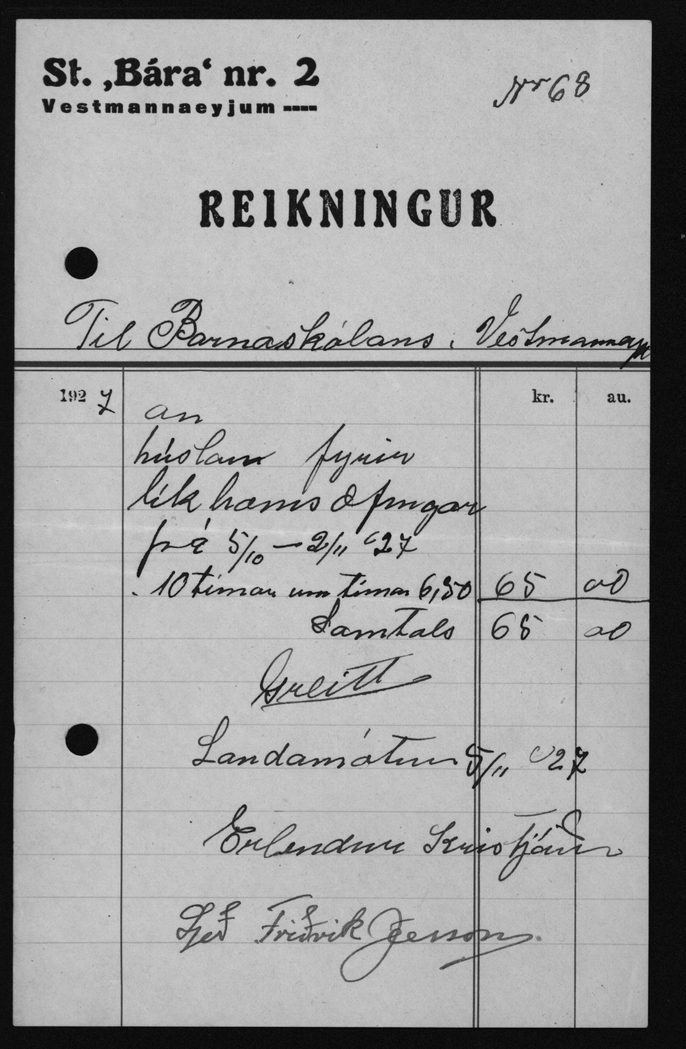 St. ‚Bára‘ nr. 2
Vestmannaeyjum
Nr 68
REIKNINGUR
Til Barnaskólans. Vestmannaeyj
1927 kr. au.
an
húslan fyrir
líkhams æfingar
frá 5/10 — 2/11 '27
10 tímar um tíman 6,50 65 00
Samtals 65 00
Greitt
Landamótum 5/11 '27
Erlendur Kristjáns
Friðrik Jesson.